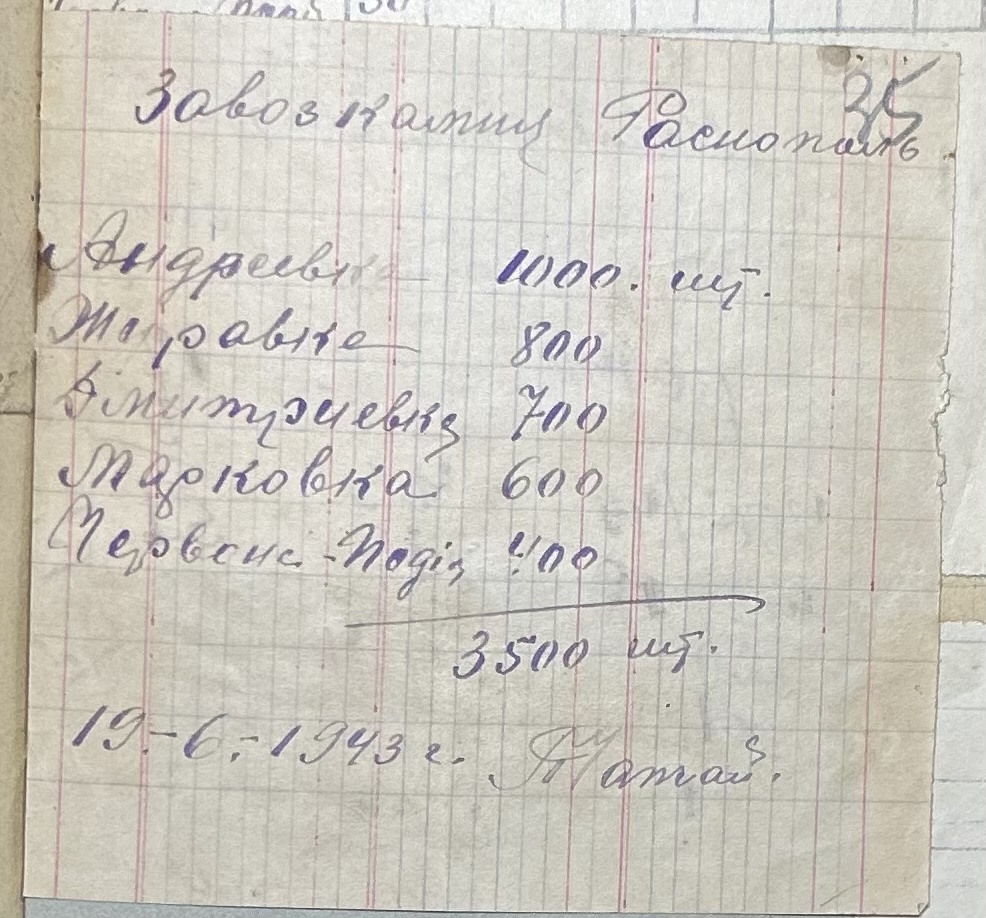 35
Завоз камиц Распополь.
Андреевка 1000. шт.
Журавка 800
Дмитриевка 700
Марковка 600
Червоні-Подіи 400
3500 шт.
19-6.-1943 г.